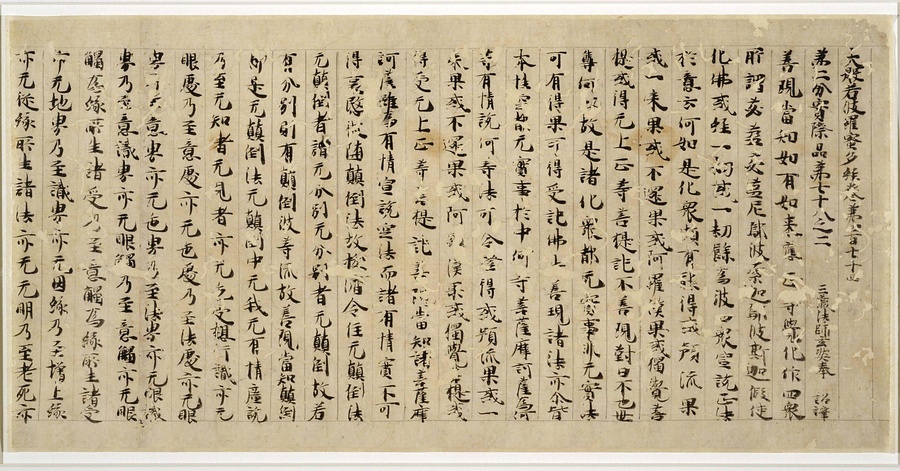 大般若波羅蜜多經卷第四百七十四
第二分實際品第七十八之二 三藏法師玄奘奉 詔譯
善現當知如有如來應正等覺化作四眾
所謂苾芻苾芻尼鄔波索迦鄔波斯迦假使
化佛或經一劫或一劫餘為彼四眾宣說正法
於意云何如是化眾頗有能得或預流果
或一來果或不還果或阿羅漢果或獨覺菩
提或得无上正等菩提記不善現對曰不也世
尊何以故是諸化眾都无實事非无實法
可有得果可得受記佛言善現諸法亦尒皆
本性空都无實事於中何等菩薩摩訶薩為何
等有情說何等法可令證得或預流果或一
來果或不還果或阿羅漢果或獨覺菩提或
得受无上正等菩提記善現當知諸菩薩摩
訶薩雖為有情宣說空法而諸有情實不可
得哀愍彼墮顛倒法故拔濟令住无顛倒法
无顛倒者謂无分別无分別者无顛倒故若
有分別則有顛倒彼等流故善現當知顛倒
即是无顛倒法无顛倒中无我无有情廣說
乃至无知者无見者亦无色无受想行識亦无
眼處乃至意處亦无色處乃至法處亦无眼
界乃至意界亦无色界乃至法界亦无眼識
界乃至意識界亦无眼觸乃至意觸亦无眼
觸為緣所生諸受乃至意觸為緣所生諸受
亦无地界乃至識界亦无因緣乃至增上緣
亦无從緣所生諸法亦无无明乃至老死亦